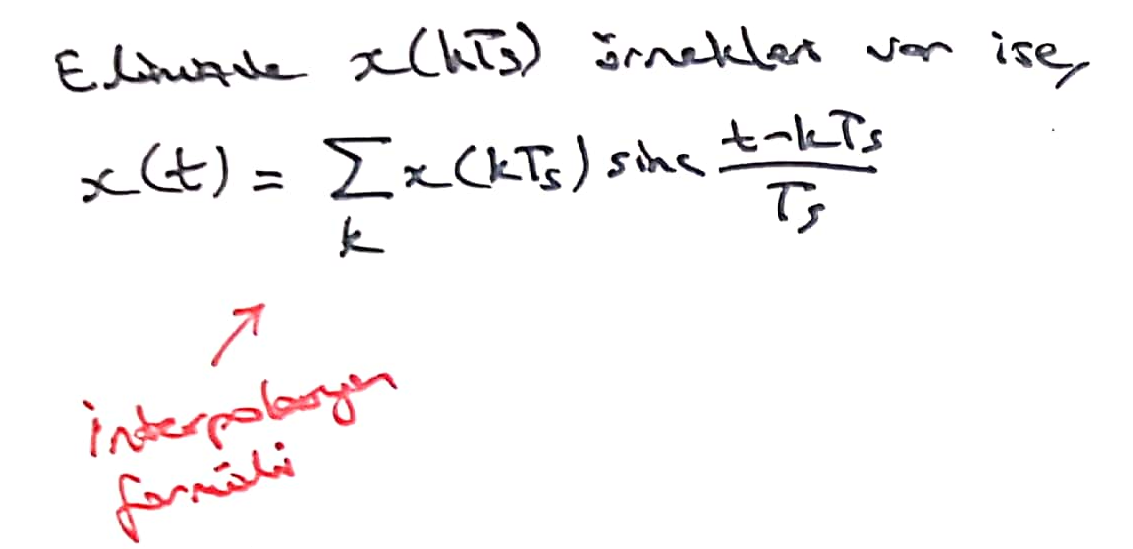 Elimizde x(kTs) örnekleri var ise,
x(t) = ∑ x(kTs) sinc (t-kTs)/Ts
k
interpolasyon
formülü